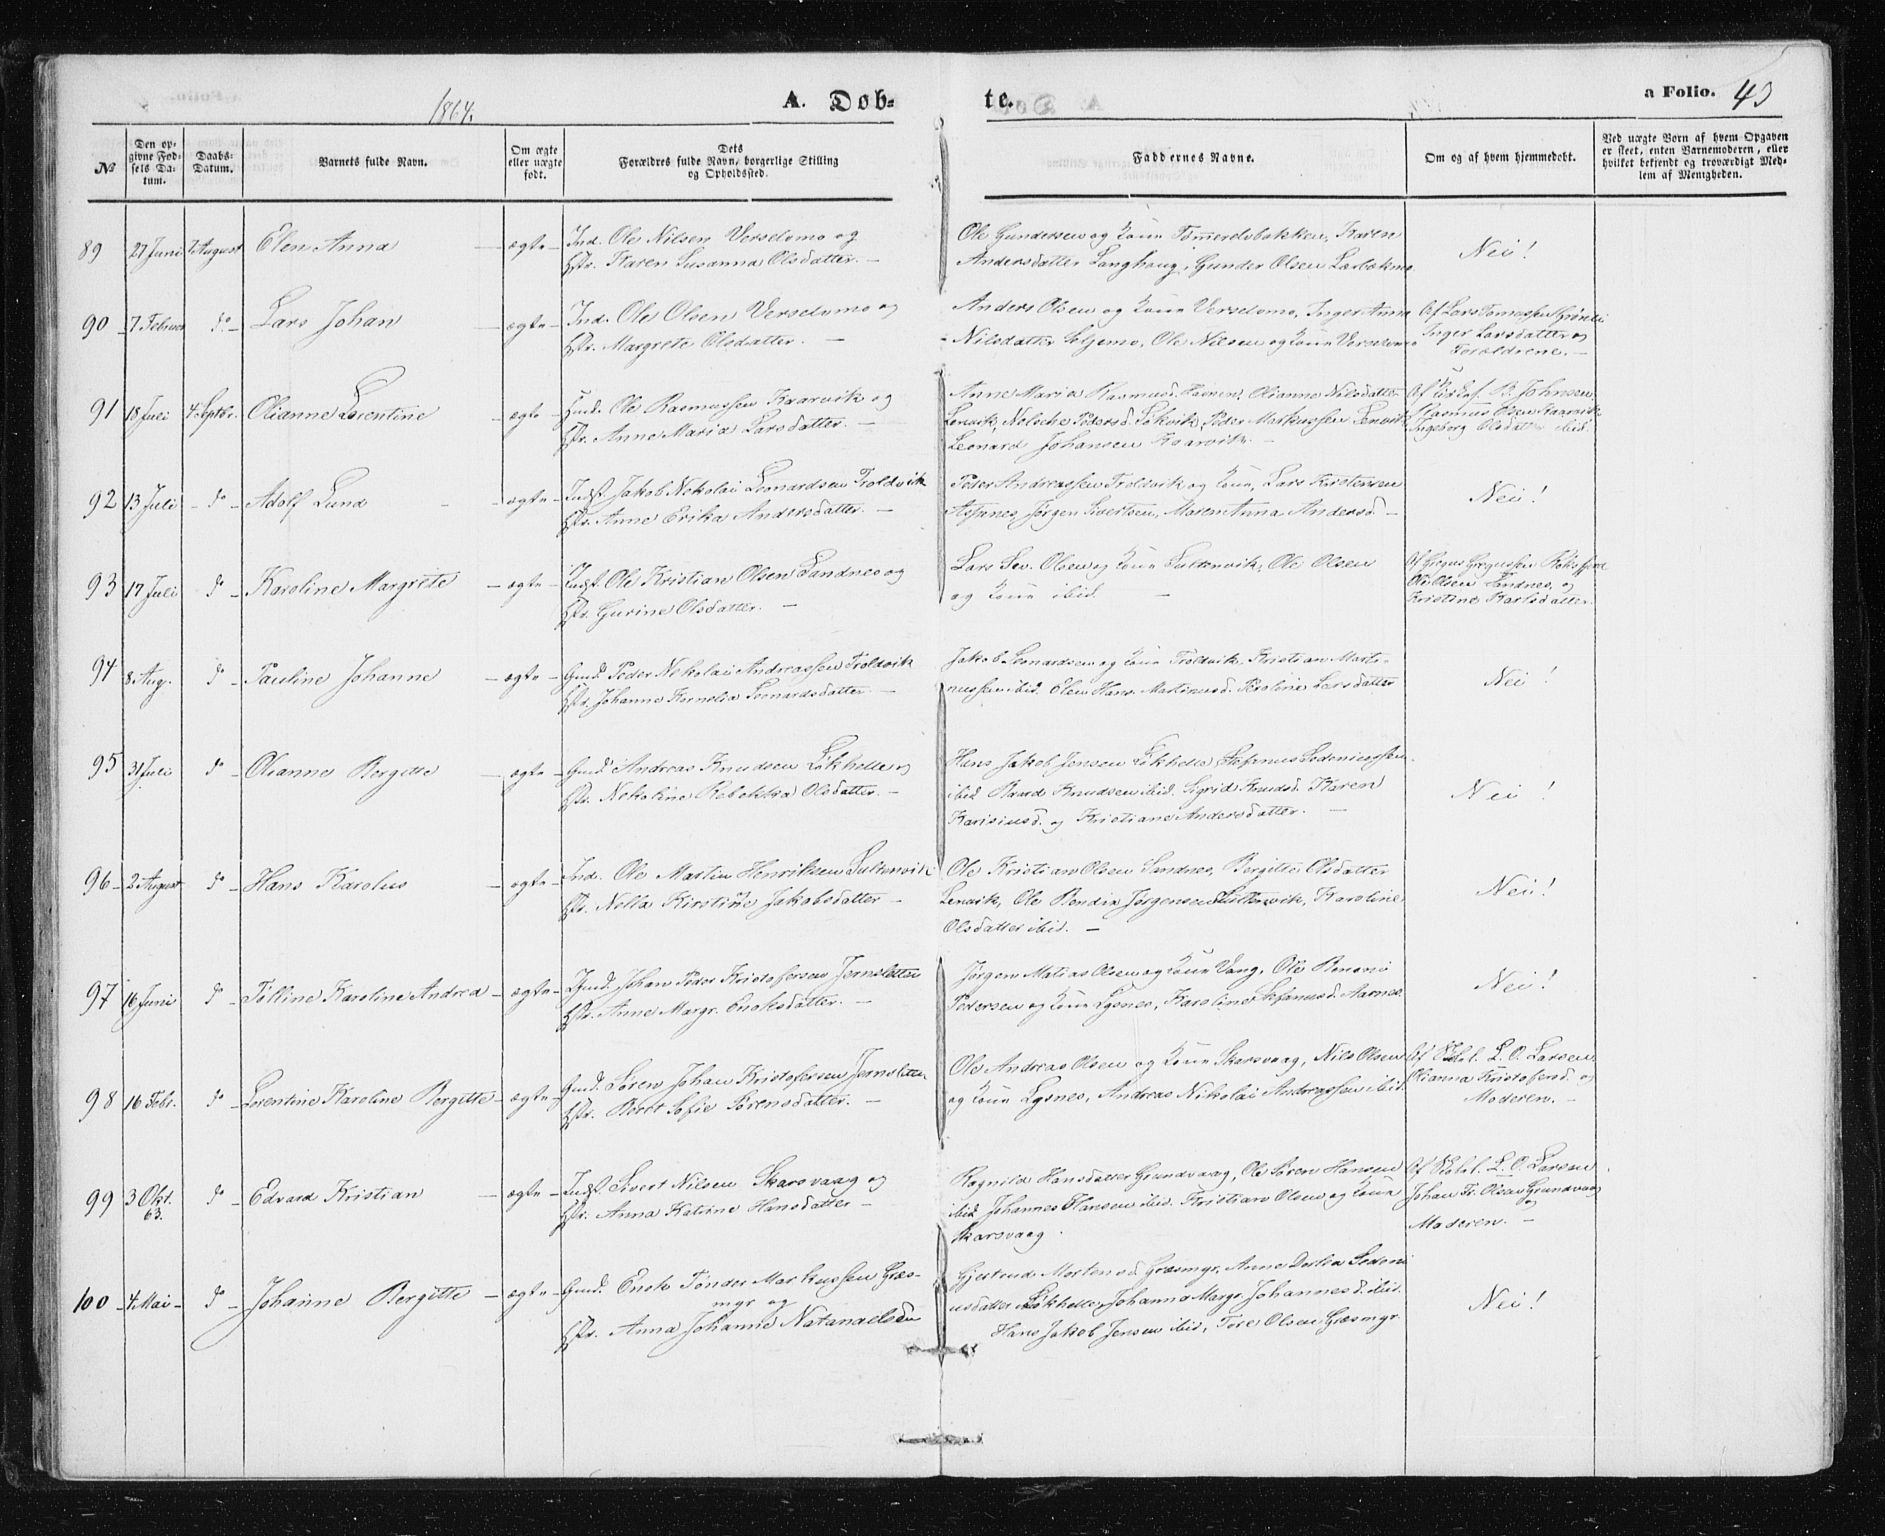 1864.
A. Døb-
te.
a Folio. 43
No
Den op-
givne Fød-
sels Da-
tum.
Daabs-
Datum.
Barnets fulde Navn.
Om ægte
eller uægte
født.
Dets
Forældres fulde Navn, borgerlige Stilling
og Opholdssted.
Faddernes Navne.
Om og af hvem hjemmedøbt.
Ved uægte Børn af hvem Opgaven
er skeet, enten Barnemoderen, eller
hvilket bekjendt og troværdigt Med-
lem af Menigheden.
89 27 Juni 7 August Elen Anna — ægte – Ind. Ole Nilsen Verselvmo og
Hstr. Karen Susanna Olsdatter. —
Ole Gundersen og Kone Tømmerelvbakken, Karen
Andersdatter Langhaug, Gunder Olsen
Nei!
90 – 7 Februar do – Lars Johan — ægte – Ind. Ole Olsen Verselvmo og
Hstr. Margrete Olsdatter. —
Anders Olsen og Kone Verselvmo, Inger Anna
Nilsdatter Ole Nilsen og Kone Verselvmo
Af Lars Tomassen
Inger Larsdatter og
Forældrene. –
91 18 Juli 4 Septbr. Olianne Lorentine – ægte – Gmd. Ole Rasmussen Kaarvik og
Hstr. Anne Maria Larsdatter. —
Anne Maria Rasmusd. Olianne Nilsdatter
Lenvik, Pedersd. Peder Markussen Lenvik
Leonard Johansen Kaarvik. –
Af B. Johnsen
Rasmus Olsen Kaarvik
Ingeborg Olsdatter ibid.
92 13 Juli – do – Adolf Lund – ægte – Indst. Jakob Nekolai Leonardsen Troldvik
Hstr. Anne Erika Andersdatter. —
Peder Andreassen Troldvik og Kone, Lars Kristensen
Jørgen Sivertsen, Maren Anna Andersd. –
Nei!
93 17 Juli do – Karoline Margrete – ægte – Indst. Ole Kristian Olsen Sandnes og
Hstr. Gurine Olsdatter. —
Lars Sev. Olsen og Kone Sultenvik, Ole Olsen
og Kone ibid. —
Af
Ole Olsen Sandnes, og
Kristine Karlsdatter.
94 8 Aug. do – Pauline Johanne – ægte – Gmd. Peder Nekolai Andreassen Troldvik
Hstr. Johanne Kornelia Leonardsdatter —
Jakob Leonardsen og Kone Troldvik, Kristian Marti-
nussen ibid. Elen Hans. Martinusd. Karoline Larsdatter
Nei!
95 31 Juli do – Olianne Bergitte – ægte – Gmd. Andreas Knudsen Løkhelle og
Hstr. Nekoline Rebekka Olsdatter. —
Hans Jakob Jensen Løkhelle, Stefanus
ibid. Baard Knudsen ibid. Sigrid Knudsd. Karen
og Kristiane Andersdatter. —
Nei!
96 – 2 August do – Hans Karolus – ægte – Ind. Ole Martin Henriksen Sultenvik
Hstr. Nella Kirstine Jakobsdatter —
Ole Kristian Olsen Sandnes, Bergitte Olsdatter
Lenvik, Ole Jørgensen Sultenvik, Karoline
Olsdatter ibid. —
Nei!
97 16 Juni do – Tolline Karoline Andrea – ægte – Gmd. Johan Peder Kristofersen Jernsletten
Hstr. Anne Margr. Enoksdatter. —
Jørgen Matias Olsen og Kone Vang, Ole
Pedersen og Kone Lysnes, Karoline Stefanusd. Aarnes
Nei!
98 16 Febr. do – Lorentine Karoline Bergitte – ægte – Gmd. Søren Johan Kristofersen Jernsletten
Hstr. Beret Sofie Sørensdatter. —
Ole Andreas Olsen og Kone Skarsvaag, Nils Olsen
og Kone Lysnes, Andreas Nikolai Andreassen ibid.
Af Skolel. L. O. Larsen
Olianna Kristofersd. og
Moderen. –
99 3 Okt. do – Edvard Kristian – ægte – Indst. Sivert Nilsen Skarsvaag og
63.
Hstr. Anna Katrine Hansdatter –
Ragnild Hansdatter Grundvaag, Ole Søren Hansen
ibid. Johannes Hansen ibid. Kristian Olsen og Kone
Skarsvaag.
Af Skolel. L. O. Larsen
Johan Fr. Olsen Grundvaag
og
Moderen. –
100 – 4 Mai – do – Johanne Bergitte – ægte – Gmd. Enok Tønder Markussen Græs-
myr og
Hstr. Anna Johanne Natanaelsdtr
Gjertrud Mortensd. Græsmyr, Anne Dortea
usdatter Løkhelle, Johanna Margr. Johannesd. ibid.
Hans Jakob Jensen ibid, Tore Olsen Græsmyr.
Nei!